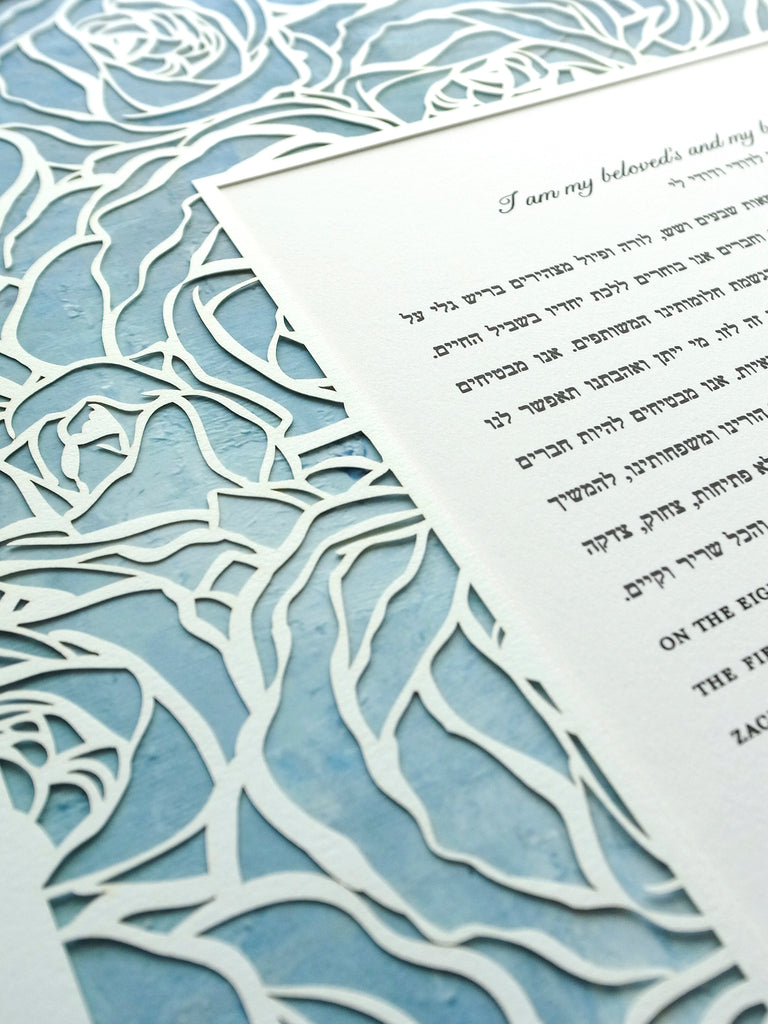 I am my beloved's and my
לדודי ודודי לי
שבעים ושש, לורה ופיול מצהירים בריש גלי על
וחברים אנו בוחרים ללכת יחדיו בשביל החיים.
חלומותינו המשותפים. אנו מבטיחים
זה לזו. מי ייתן ואהבתנו תאפשר לנו
אנו מבטיחים להיות חברים
הורינו ומשפחותינו, להמשיך
פתיחות, צחוק, צדקה
והכל שריר וקיים.
ON THE
THE